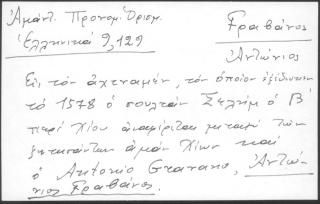 Ἀμάντ. Προνομ. Ὁρισμ.
Ἑλληνικά 9, 129
Γραβάνος
Ἀντώνιος
Εἰς τὸν ἀχτναμέν, τὸν ὁποῖον ἐξέδωκεν
τὸ 1578 ὁ σουλτάν Σελήμ ὁ Β΄
περί Χίου ἀναφέρεται μεταξύ τῶν
ζητησάντων ἀμάν Χίων καί
ὁ Antonio Gravano, Ἀντώ-
νιος Γραβάνος.